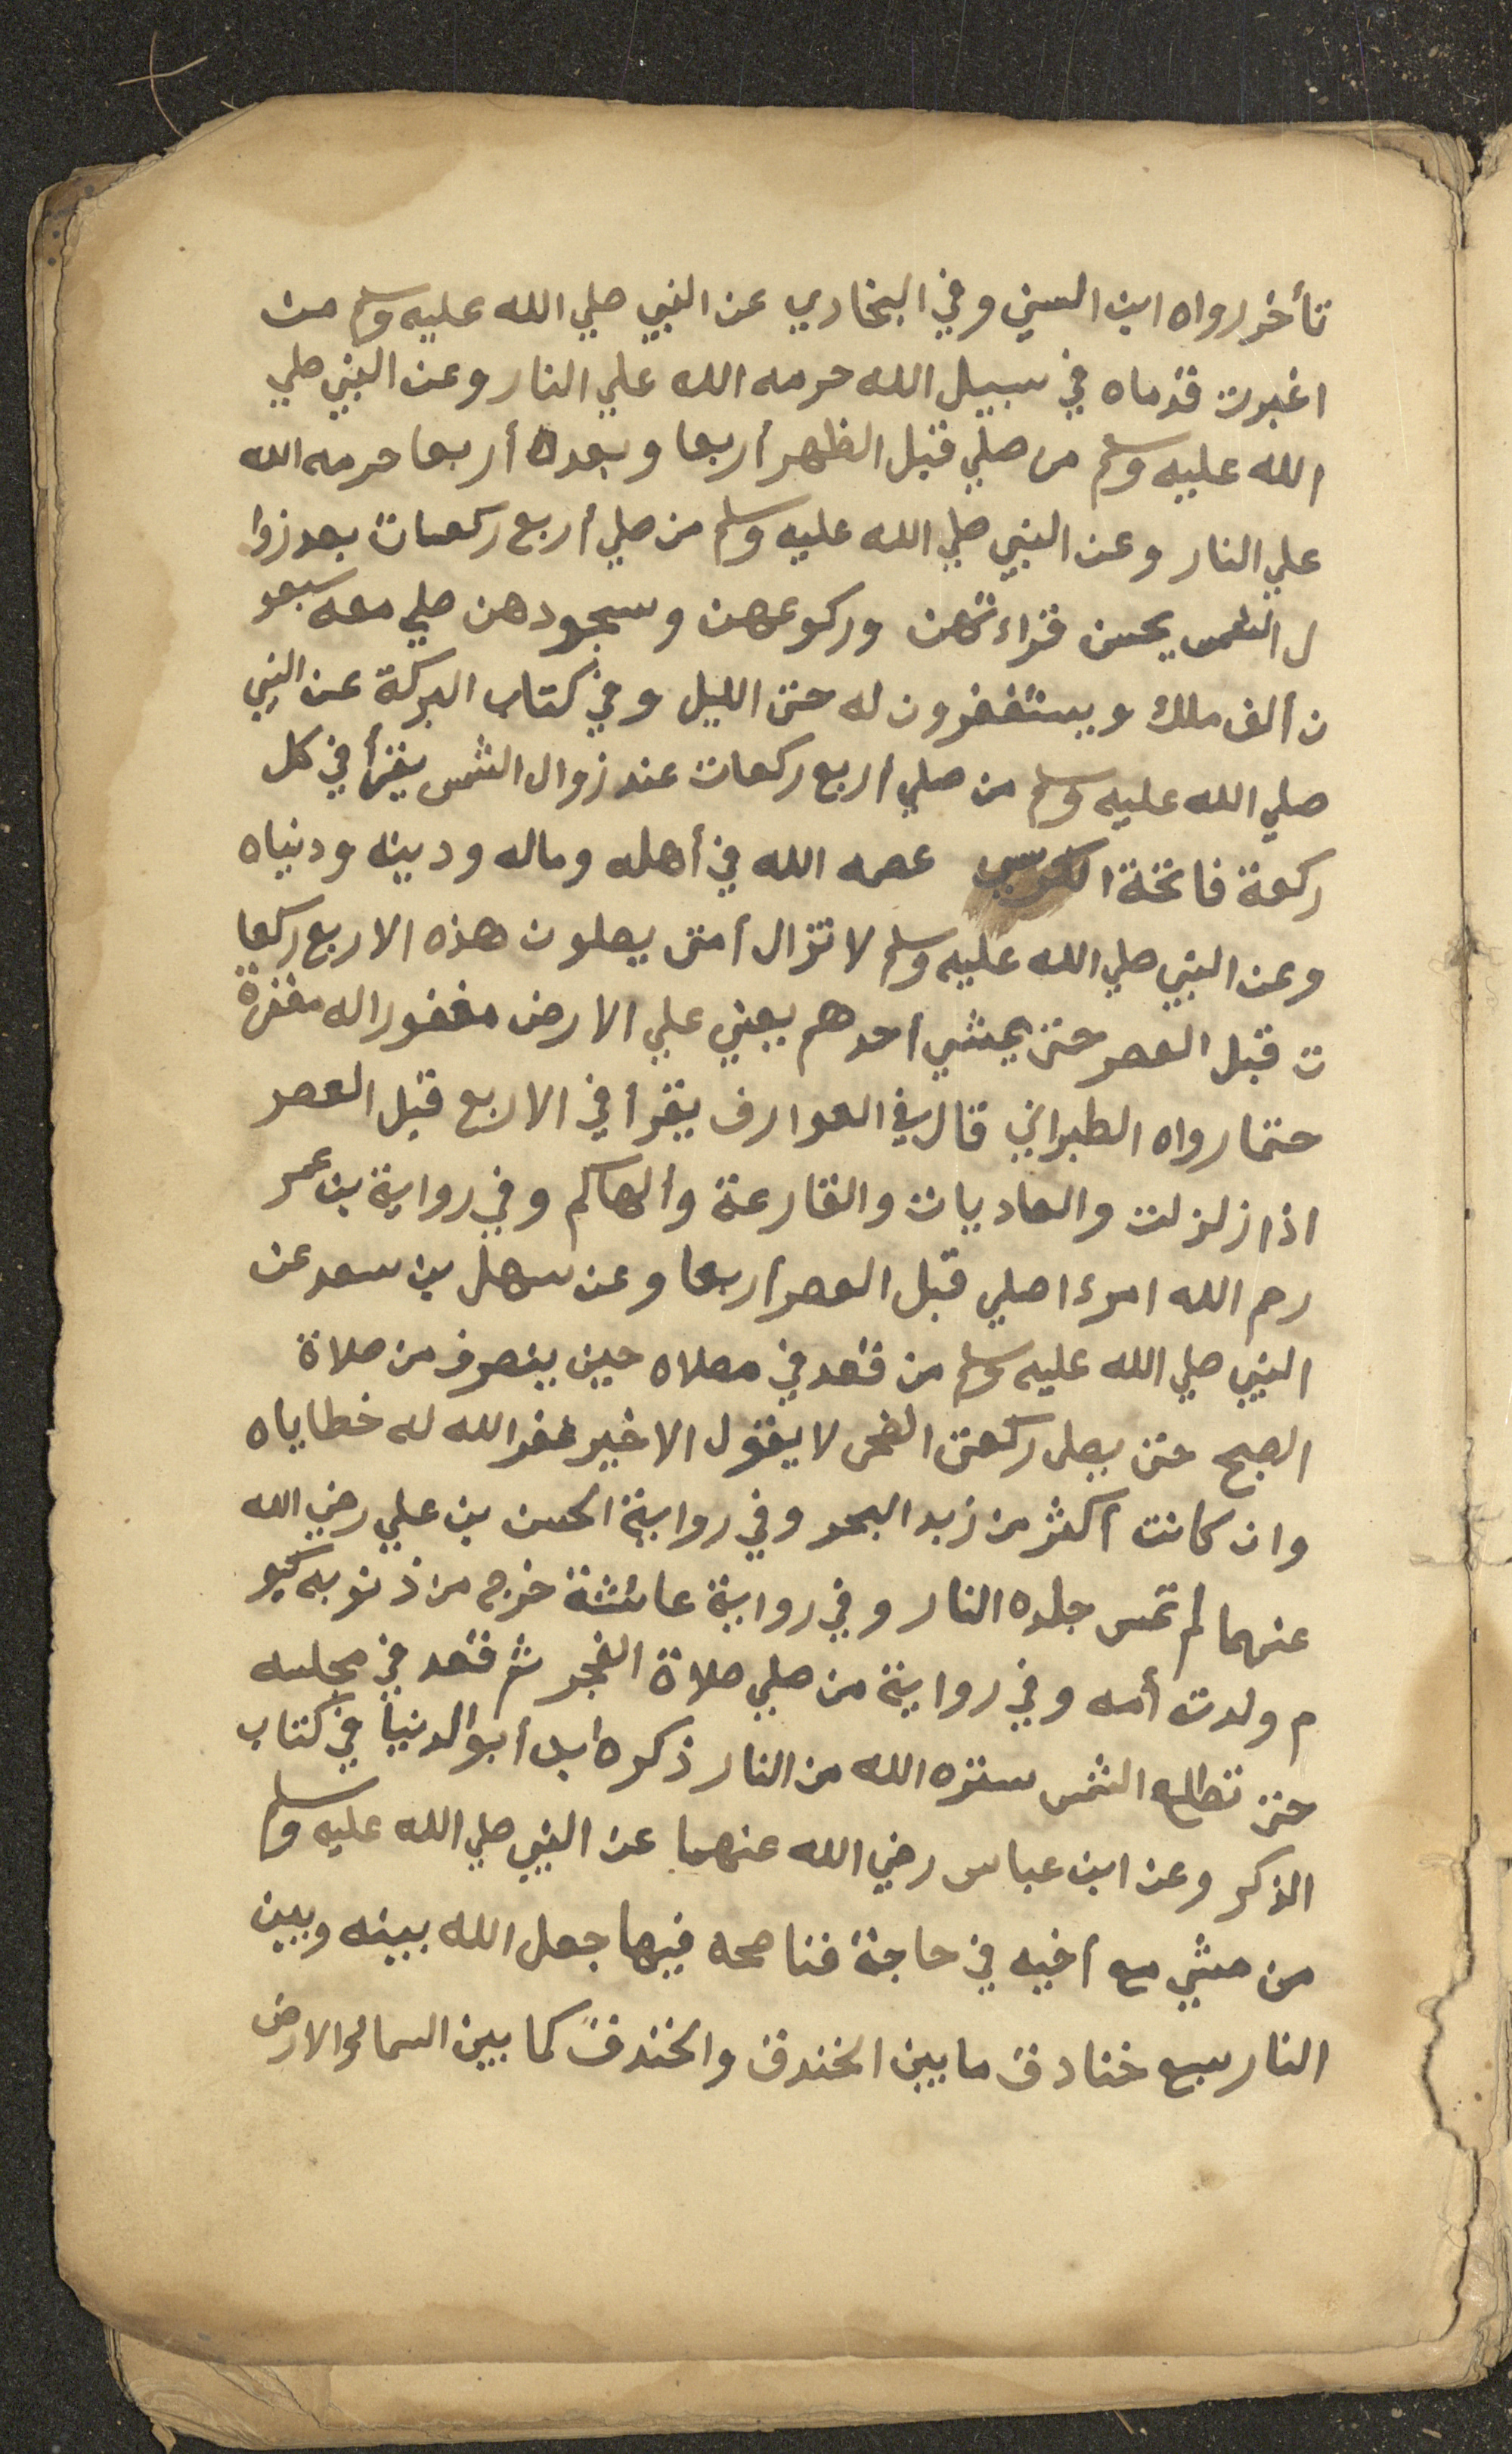 تأخر رواه ابن السني وفي البخاري عن النبي صلي الله عليه وسلم من
اغبرت قدماه في سبيل الله حرمه الله علي النار وعن النبي صلي
الله عليه وسلم من صلي قبل الظهر أربعا وبعده أربعا حرمه الله
علي النار وعن النبي صلي الله عليه وسلم من صلي أربع ركعات بعد زوا
ل الشمس يحسن قراءتهن وركوعهن وسجودهن صلي معه سبعو
ن ألف ملك ويستغفرون له حتى الليل وفي كتاب البركة عن النبي
صلي الله عليه وسلم من صلي أربع ركعات عند زوال الشمس يقرأ في كل
ركعة فاتحة الكرسي عصمه الله في أهله وماله ودينه ودنياه
وعن النبي صلي الله عليه وسلم لا تزال أمتى يصلون هذه الاربع ركعا
ت قبل العصر حتى يمشي أحدهم يعني علي الارض مغفورا له مغفرة
حتما رواه الطبراني قال في العوارف يقرأ في الاربع قبل العصر
اذا زلزلت والعاديات والقارعة وألهاكم وفي رواية بن عمر
رحم الله امرءا صلي قبل العصر أربعا وعن سهل بن سعد عن
النبي صلي الله عليه وسلم من قعد في مصلاه حين ينصرف من صلاة
الصبح حتى يصلى ركعتى الضحى لا يقول الا خير غفر الله له خطاياه
وان كانت أكثر من زبد البحر وفي رواية الحسن بن علي رضي الله
عنهما لم تمس جلده النار وفي رواية عائشة خرج من ذنوبه كيو
م ولدته أمه وفي رواية من صلي صلاة الفجر ثم قعد في مجلسه
حتى تطلع الشمس ستره الله من النار ذكره ابن أبو الدنيا في كتاب
الذكر وعن ابن عباس رضي الله عنهما عن النبي صلي الله عليه وسلم
من مشي مع أخيه في حاجة فناصحه فيها جعل الله بينه وبين
النار سبع خنادق ما بين الخندق والخندق كما بين السما والارض